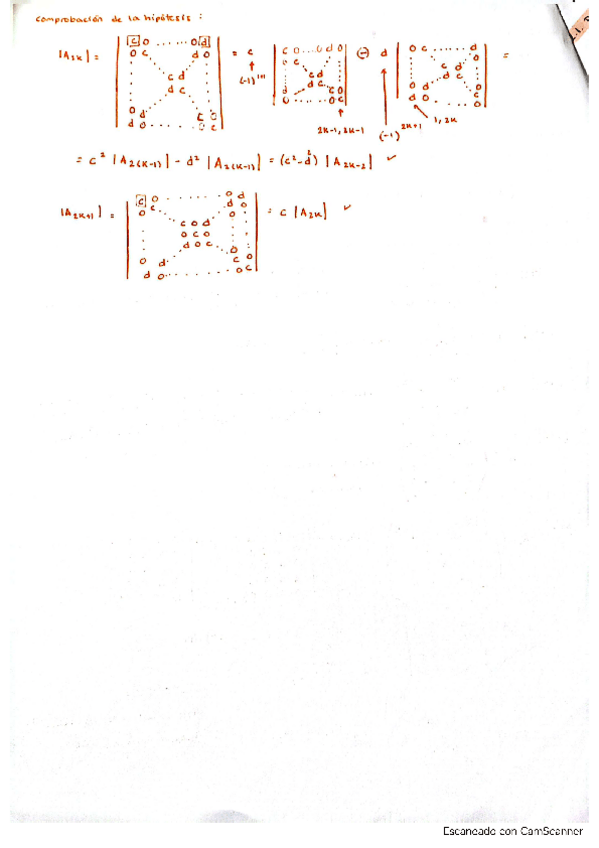 comprobación de la hipótesis:
|A2k| = | c 0 ...... 0 d ; 0 c d 0 ; c d ; d c ; 0 d c 0 ; d 0 ...... 0 c | = c | c 0 ... 0 d 0 ; 0 c ; c d ; d c ; d c 0 ; 0 ...... 0 c | (-) d | 0 c ...... d ; 0 ; c d ; d c ; 0 d c ; d 0 ... 0 | =
(-1)^1+1
2k-1, 2k-1
(-1)^2k+1
1, 2k
= c² |A2(k-1)| - d² |A2(k-1)| = (c²-d²) |A2k-2| ✓
|A2k+1| = | c 0 ...... 0 d ; 0 c d 0 ; c 0 d ; 0 c 0 ; d 0 c ; 0 d c 0 ; d 0 ...... 0 c | = c |A2k| ✓
Escaneado con CamScanner